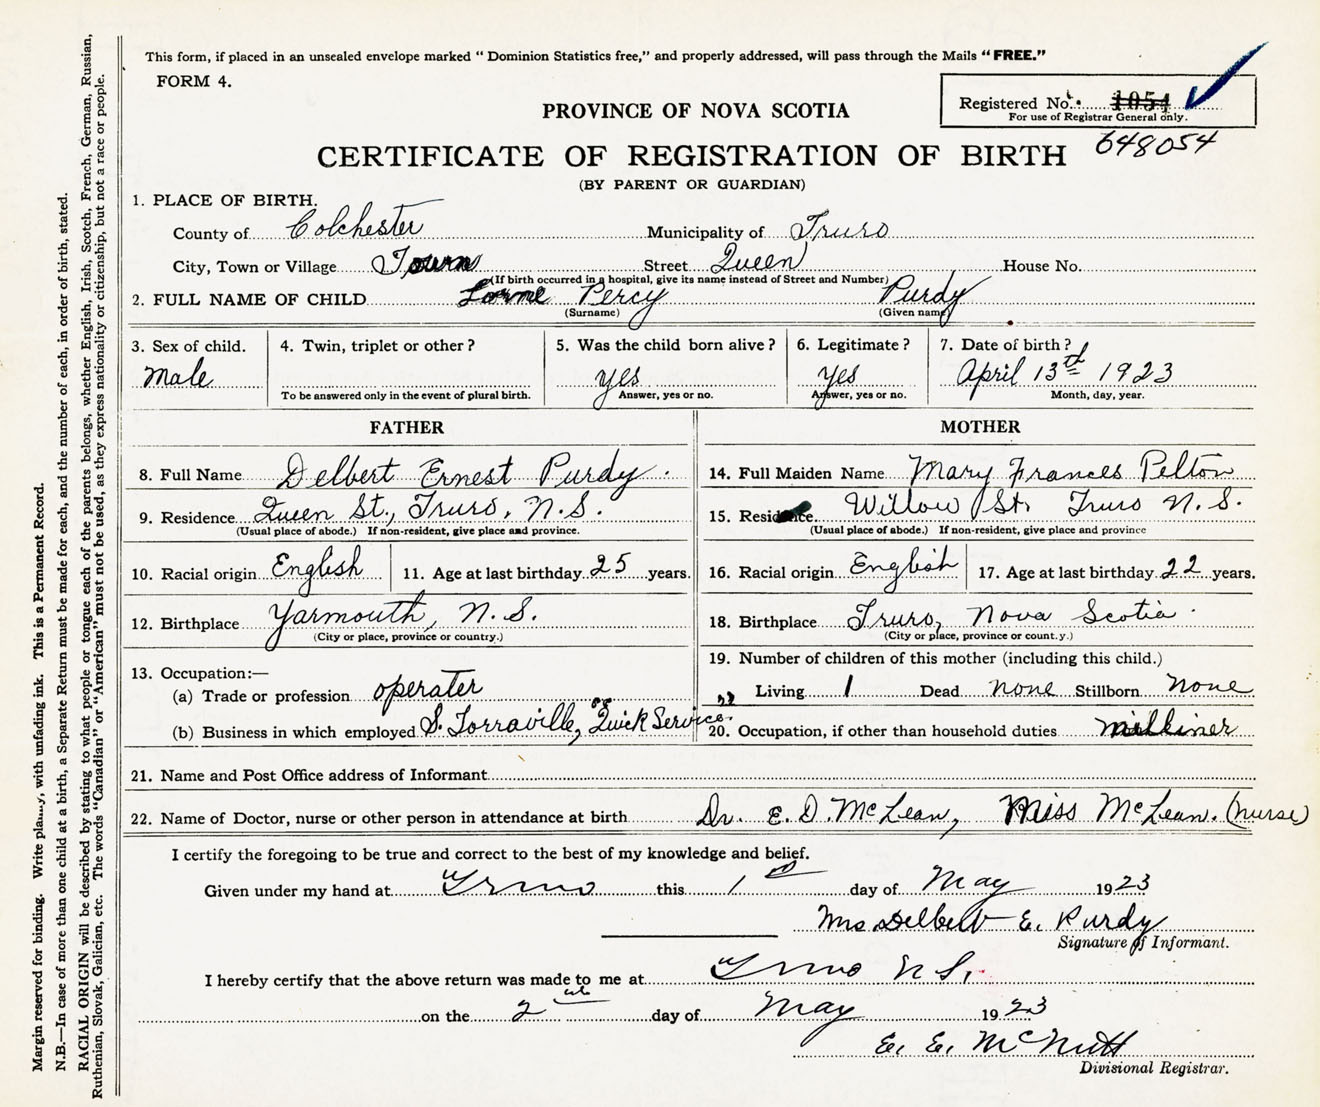 This form, if placed in an unsealed envelope marked " Dominion Statistics free," and properly addressed, will pass through the Mails " FREE."
FORM 4.
Registered No. 1054
For use of Registrar General only.
648054
PROVINCE OF NOVA SCOTIA
CERTIFICATE OF REGISTRATION OF BIRTH
(BY PARENT OR GUARDIAN)
1. PLACE OF BIRTH.
County of Colchester Municipality of Truro
City, Town or Village Town Street Queen House No.
(If birth occurred in a hospital, give its name instead of Street and Number)
2. FULL NAME OF CHILD Lorne Percy Purdy
(Surname) (Given name)
3. Sex of child. 4. Twin, triplet or other ? 5. Was the child born alive ? 6. Legitimate ? 7. Date of birth ?
Male yes yes April 13th 1923
To be answered only in the event of plural birth. Answer, yes or no. Answer, yes or no. Month, day, year.
FATHER
8. Full Name Delbert Ernest Purdy
9. Residence Queen St., Truro, N.S.
(Usual place of abode.) If non-resident, give place and province.
10. Racial origin English 11. Age at last birthday 25 years.
12. Birthplace Yarmouth, N.S.
(City or place, province or country.)
13. Occupation:—
(a) Trade or profession operater
(b) Business in which employed S. Torraville, "Quick Service"
MOTHER
14. Full Maiden Name Mary Frances Pelton
15. Residence Willow St. Truro N.S.
(Usual place of abode.) If non-resident, give place and province
16. Racial origin English 17. Age at last birthday 22 years.
18. Birthplace Truro, Nova Scotia
(City or place, province or count.y.)
19. Number of children of this mother (including this child.)
Living 1 Dead none Stillborn none
20. Occupation, if other than household duties milliner
21. Name and Post Office address of Informant
22. Name of Doctor, nurse or other person in attendance at birth Dr. E. D. McLean, Miss McLean. (nurse)
I certify the foregoing to be true and correct to the best of my knowledge and belief.
Given under my hand at Truro this 1st day of May 1923
Mrs Delbert E. Purdy
Signature of Informant.
I hereby certify that the above return was made to me at Truro N.S.
on the 2nd day of May 1923
E. E. McNutt
Divisional Registrar.
Margin reserved for binding. Write plainly, with unfading ink. This is a Permanent Record.
N.B.—In case of more than one child at a birth, a Separate Return must be made for each, and the number of each, in order of birth, stated.
RACIAL ORIGIN will be described by stating to what people or tongue each of the parents belongs, whether English, Irish, Scotch, French, German, Russian,
Ruthenian, Slovak, Galician, etc. The words "Canadian" or "American" must not be used, as they express nationality or citizenship, but not a race or people.